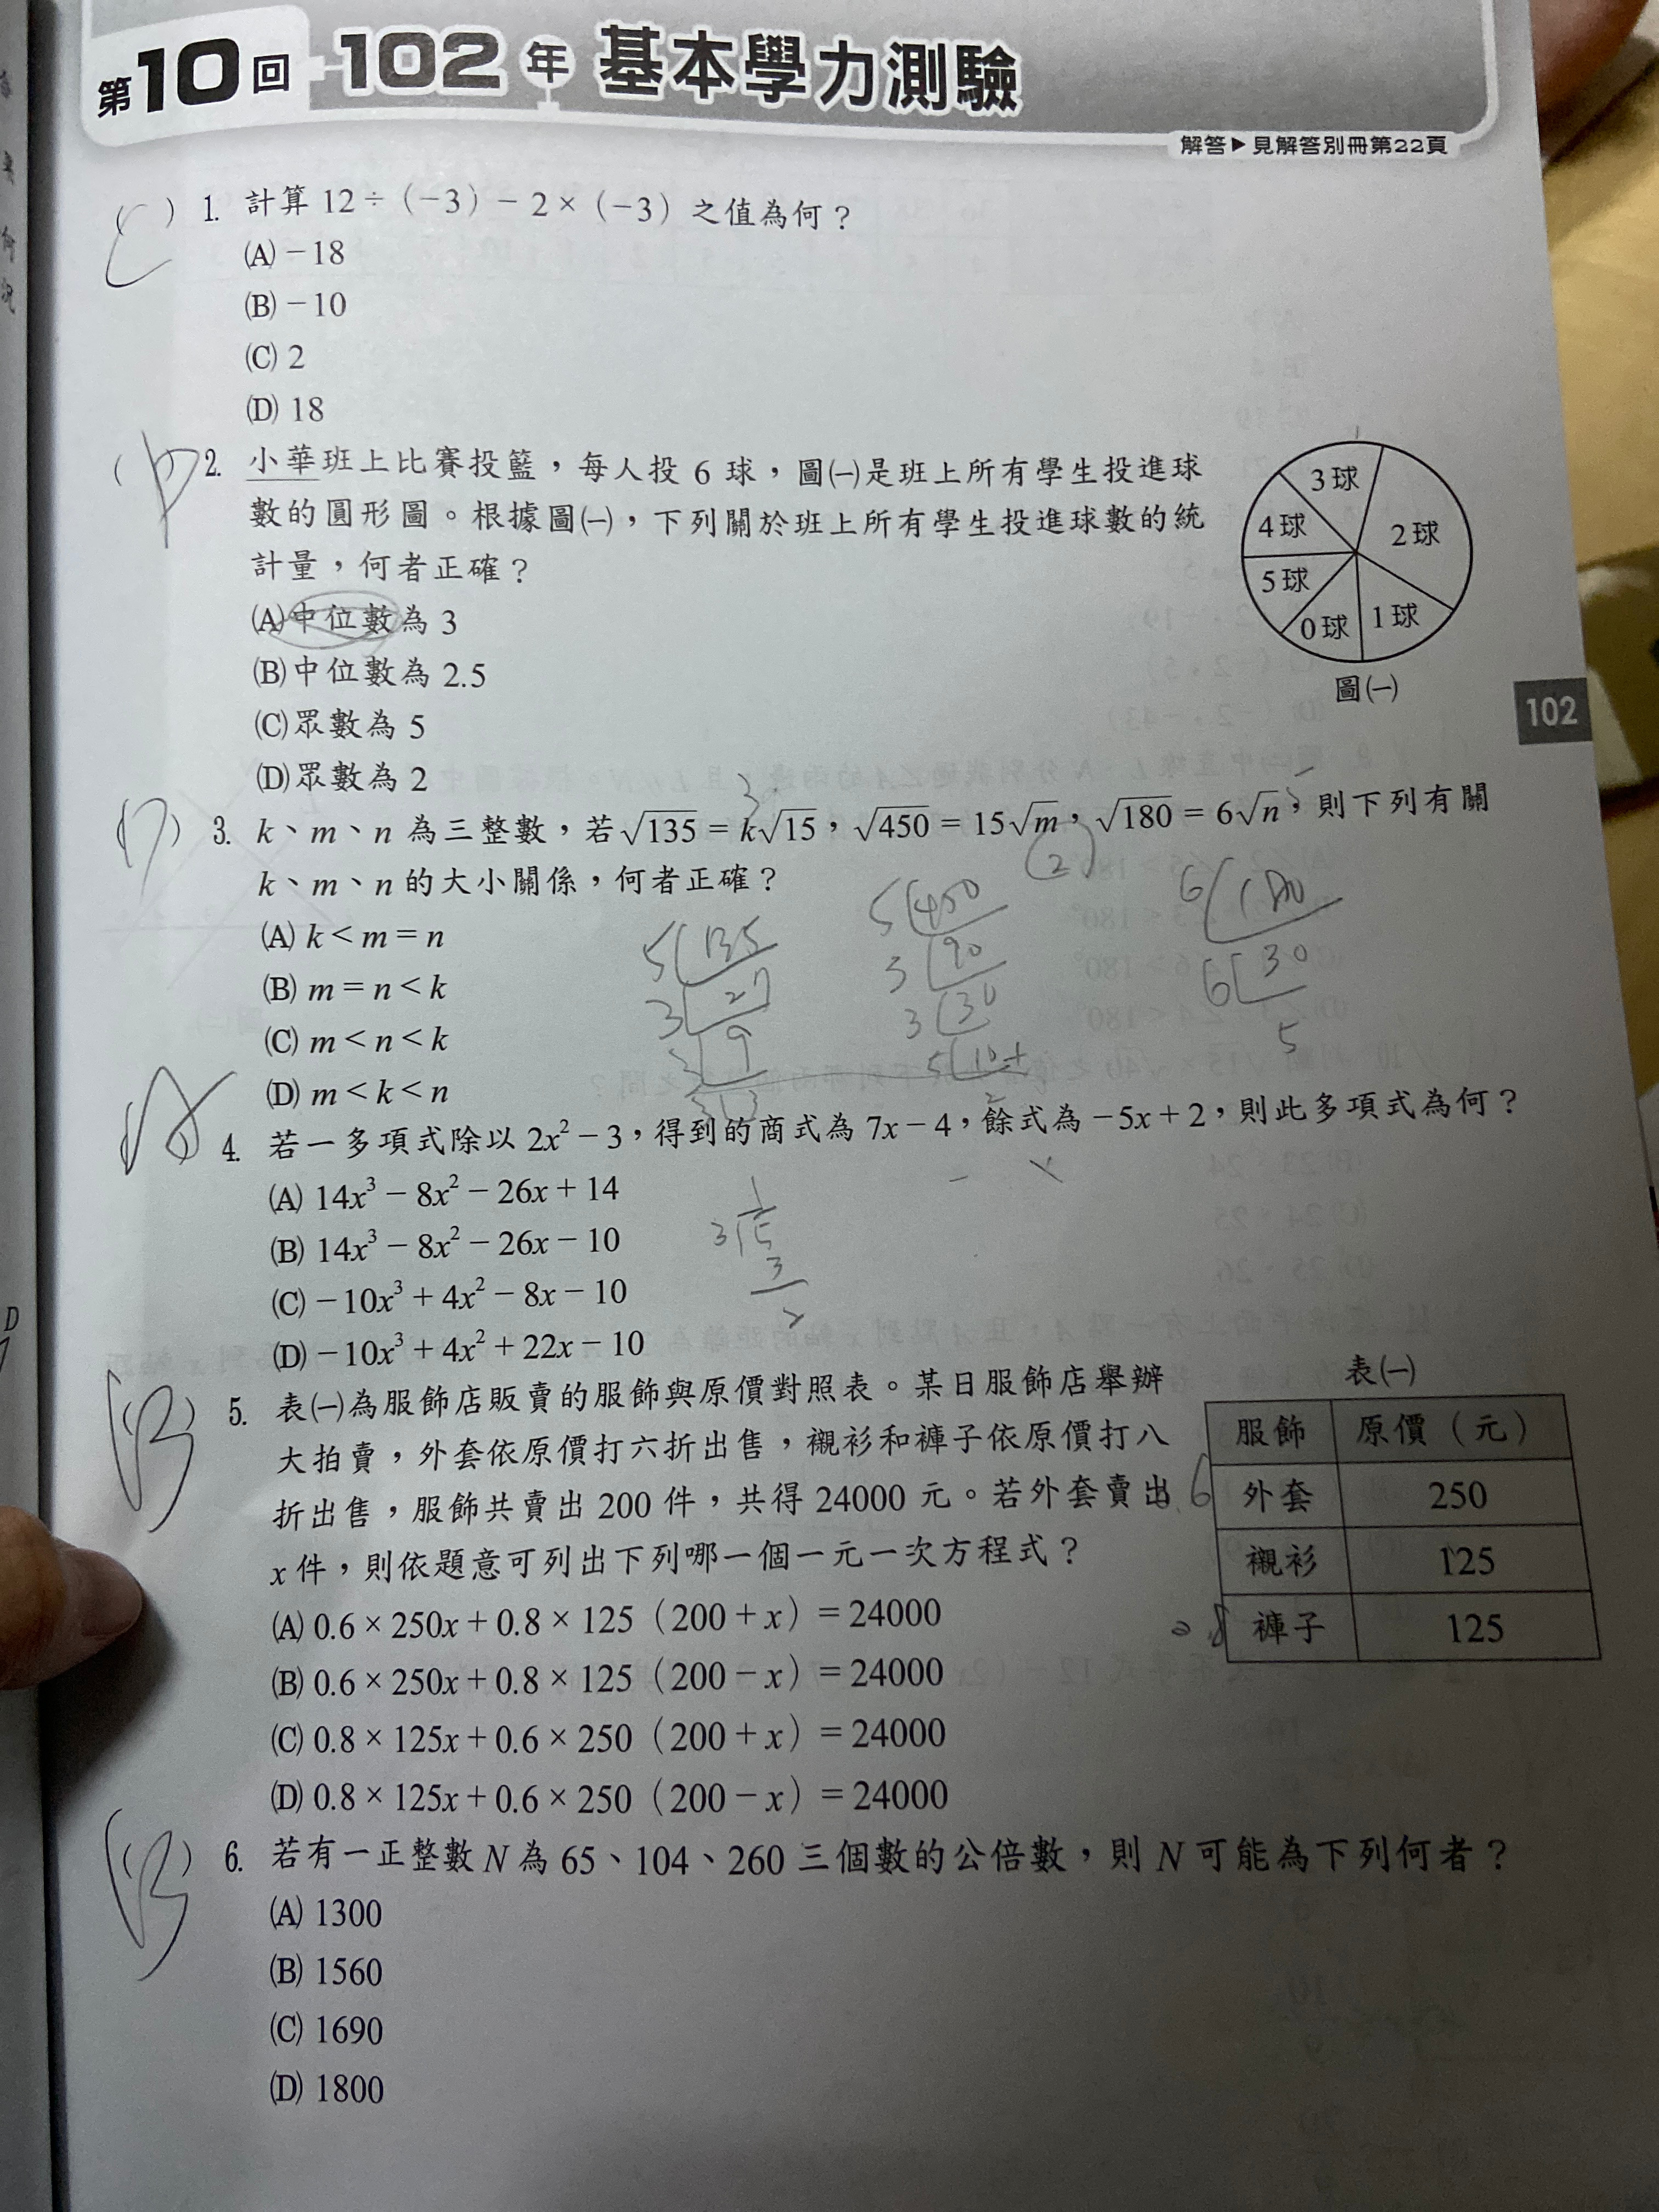 第10回 102年 基本學力測驗
解答▶見解答別冊第22頁
(C) 1. 計算 12÷(-3)-2×(-3) 之值為何?
(A) -18
(B) -10
(C) 2
(D) 18
(D) 2. 小華班上比賽投籃,每人投 6 球,圖(一)是班上所有學生投進球
數的圓形圖。根據圖(一),下列關於班上所有學生投進球數的統
計量,何者正確?
(A)中位數為 3
(B)中位數為 2.5
(C)眾數為 5
(D)眾數為 2
3球
4球
2球
5球
0球
1球
圖(一)
102
(D) 3. k、m、n 為三整數,若√135 = k√15,√450 = 15√m,√180 = 6√n,則下列有關
3
5
(2)
k、m、n 的大小關係,何者正確?
(A) k < m = n
(B) m = n < k
(C) m < n < k
(D) m < k < n
5 135
3 27
3 9
3
5 450
3 90
3 30
5 10
2
6 180
6 30
5
(A) 4. 若一多項式除以 2x² - 3,得到的商式為 7x - 4,餘式為 -5x + 2,則此多項式為何?
(A) 14x³ - 8x² - 26x + 14
(B) 14x³ - 8x² - 26x - 10
(C) -10x³ + 4x² - 8x - 10
(D) -10x³ + 4x² + 22x - 10
1
3 5
3
2
(B) 5. 表(一)為服飾店販賣的服飾與原價對照表。某日服飾店舉辦
大拍賣,外套依原價打六折出售,襯衫和褲子依原價打八
折出售,服飾共賣出 200 件,共得 24000 元。若外套賣出
x 件,則依題意可列出下列哪一個一元一次方程式?
(A) 0.6 × 250x + 0.8 × 125(200 + x)= 24000
(B) 0.6 × 250x + 0.8 × 125(200 - x)= 24000
(C) 0.8 × 125x + 0.6 × 250(200 + x)= 24000
(D) 0.8 × 125x + 0.6 × 250(200 - x)= 24000
表(一)
服飾 原價(元)
0.6 外套 250
襯衫 125
0.8 褲子 125
(B) 6. 若有一正整數 N 為 65、104、260 三個數的公倍數,則 N 可能為下列何者?
(A) 1300
(B) 1560
(C) 1690
(D) 1800